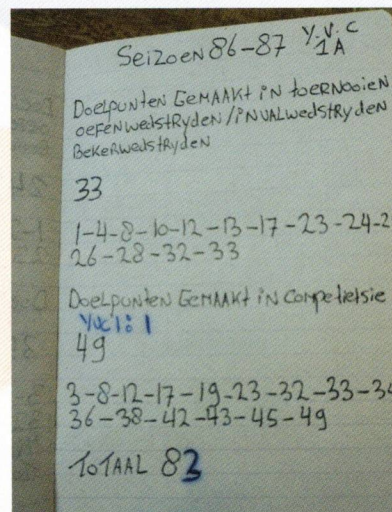 Seizoen 86-87 Y.V.C
1A
Doelpunten Gemaakt in toernooien
oefenwedstryden/invalwedstryden
Bekerwedstryden
33
1-4-8-10-12-13-17-23-24-2
26-28-32-33
Doelpunten Gemaakt in Competietsie
YVC1: 1
49
3-8-12-17-19-23-32-33-34
36-38-42-43-45-49
TOTAAL 83